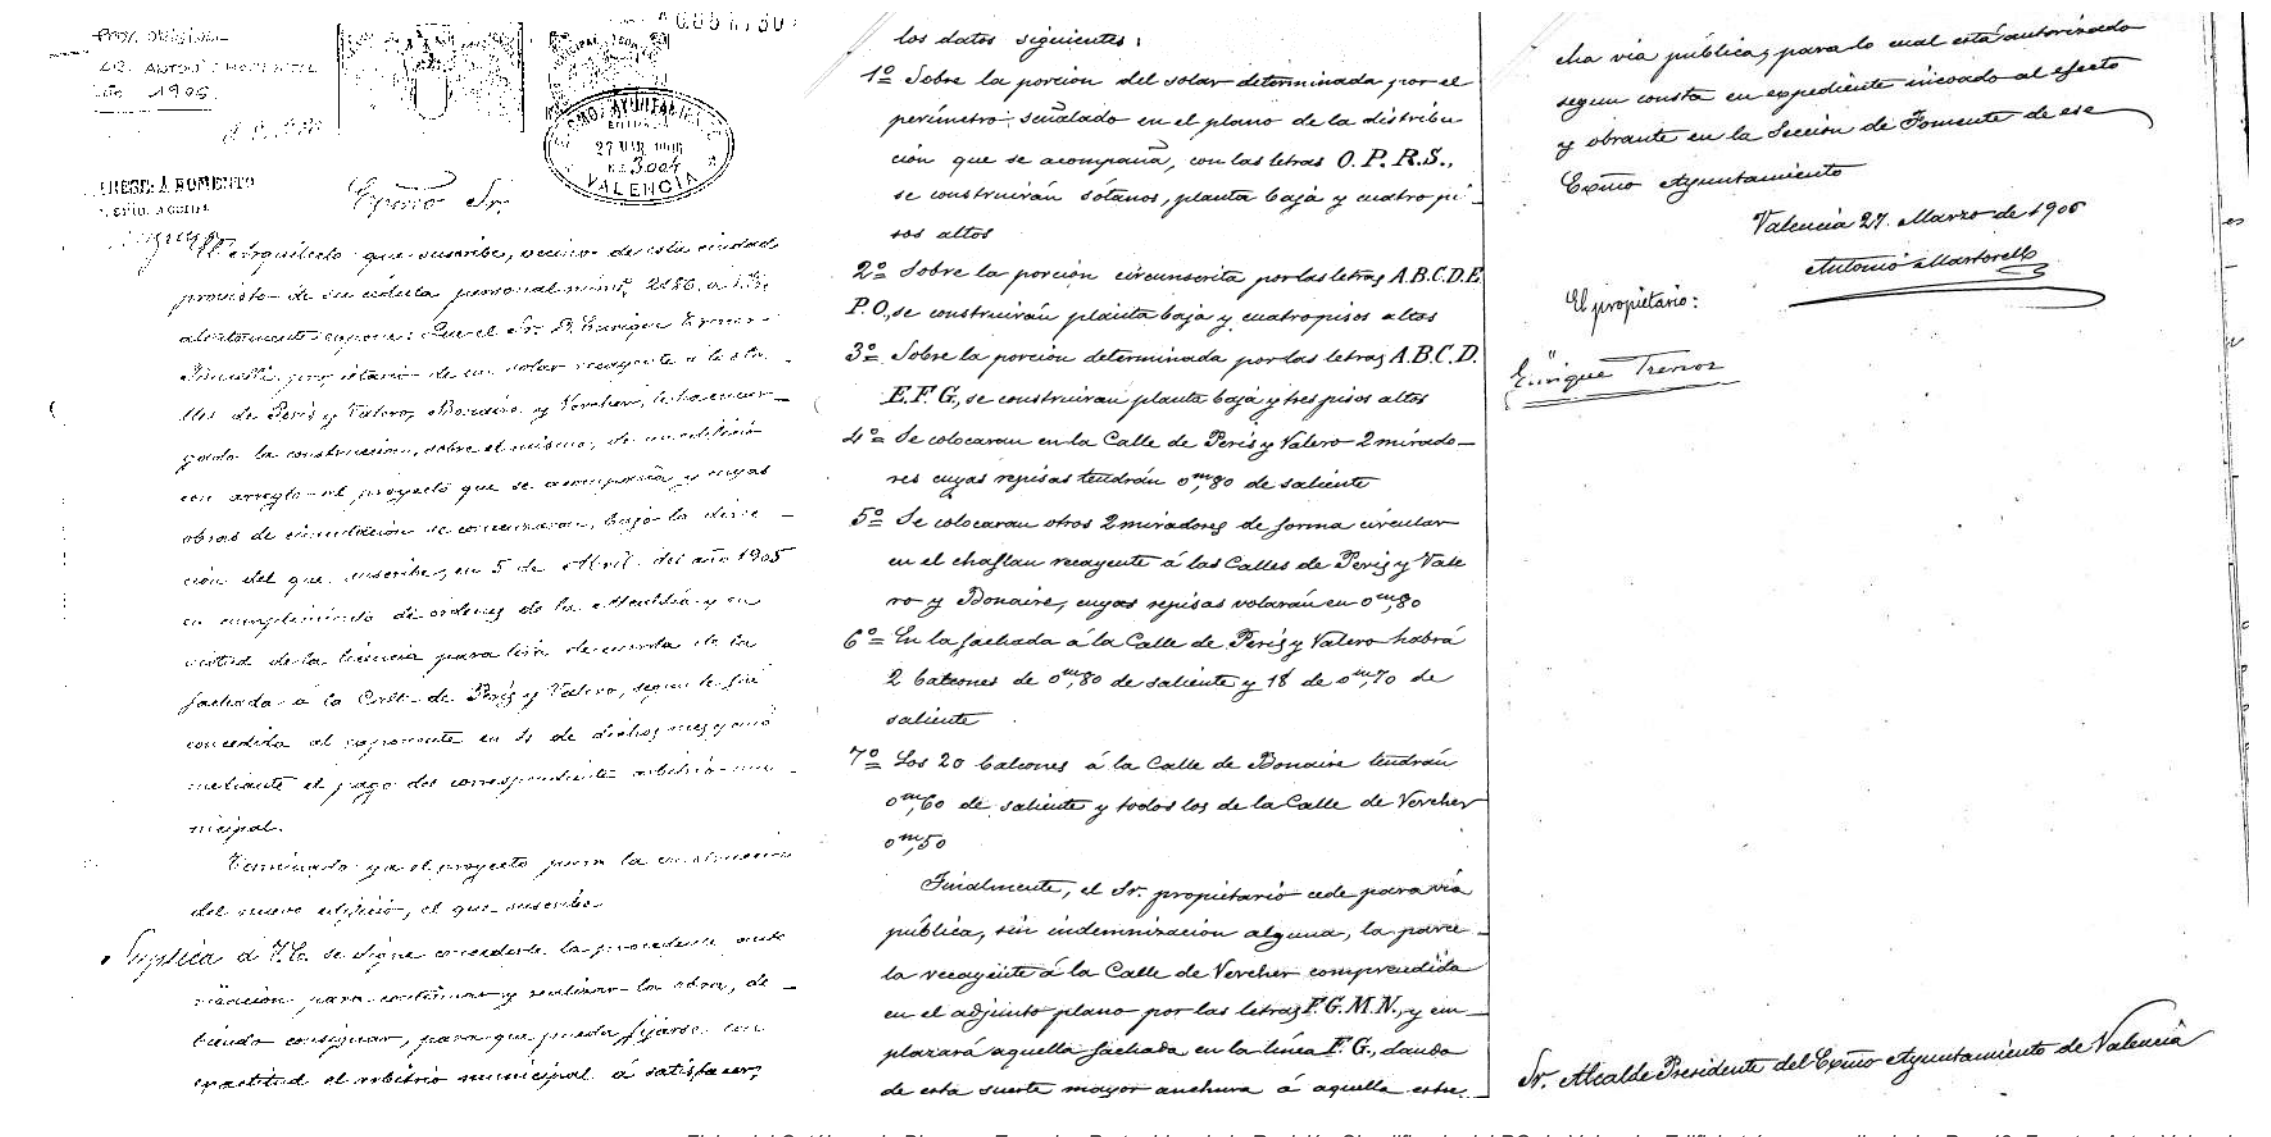 PROY. ORIGINAL
ARQ. ANTONIO MARTORELL
Año 1906
EXCMO. AYUNTAMIENTO
ENTRADA
27 MAR 1906
No 3004
VALENCIA
FOMENTO
Exmo Sr.
El Arquitecto que suscribe, vecino de esta ciudad
provisto de su cédula personal núm.
atentamente expone: Que el Sr. D. Enrique Trenor
propietario de un solar recayente á las ca-
lles de Peris y Valero, Bonaire y Vercher, le ha encar-
gado la construcción, sobre el mismo, de un edificio
con arreglo al proyecto que se acompaña y cuyas
obras de cimentación se comenzaron, bajo la direc-
ción del que suscribe, en 5 de Abril del año 1905
en cumplimiento de ordenes de la Alcaldía y en
virtud de la licencia para de la
fachada á la Calle de Peris y Valero, segun le fué
concedida al exponente en de dichos mes y año
mediante el pago del correspondiente arbitrio mu-
nicipal.
Terminado ya el proyecto para la construcción
del nuevo edificio, el que suscribe
Suplica á V.E. se digne concederle la procedente auto
rización para continuar y realizar la obra, de-
biendo consignar, para que pueda fijarse con
exactitud el arbitrio municipal á satisfacer,
los datos siguientes:
1º Sobre la porción del solar determinada por el
perímetro señalado en el plano de la distribu
ción que se acompaña, con las letras O.P.R.S.,
se construirán sótanos, planta baja y cuatro pi-
sos altos
2º Sobre la porción circunscrita por las letras A.B.C.D.E
P.O, se construirán planta baja y cuatro pisos altos
3º Sobre la porción determinada por las letras A.B.C.D.
E.F.G., se construiran planta baja y tres pisos altos
4º Se colocaran en la Calle de Peris y Valero 2 mirado-
res cuyas repisas tendrán 0m,80 de saliente
5º Se colocaran otros 2 miradores de forma circular
en el chaflan recayente á las Calles de Peris y Vale
ro y Bonaire, cuyas repisas volarán en 0m,80
6º En la fachada á la Calle de Peris y Valero habrá
2 balcones de 0m,80 de saliente y 18 de 0m,70 de
saliente
7º Los 20 balcones á la Calle de Bonaire tendrán
0m,60 de saliente y todos los de la Calle de Vercher
0m,50
Finalmente, el Sr. propietario cede para vía
pública, sin indemnización alguna, la parce-
la recayente á la Calle de Vercher comprendida
en el adjunto plano por las letras F.G.M.N., y em-
plazará aquella fachada en la línea F.G., dando
de esta suerte mayor anchura á aquella estre.
cha vía pública, para lo cual está autorizado
segun consta en expediente incoado al efecto
y obrante en la Sección de Fomento de ese
Exmo Ayuntamiento
Valencia 27 Marzo de 1906
Antonio Martorell
El propietario:
Enrique Trenor
Sr. Alcalde Presidente del Exmo Ayuntamiento de Valencia